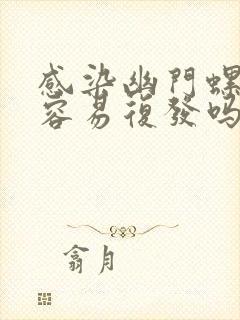 感染幽門螺
容易復發吗
翕月